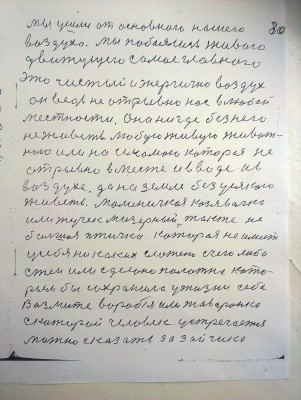 80
мы ушли от основного нашего
воздуха. мы побоялись живого
двигущего самое главного
это чистый и энергично воздух
он ведь не отрывно нас в любой
местности, Она нигде без него
не живеть любую живую живот-
ною или насекомого которая не
отрывно вместе и в воде и в
воздухе, да на земле без усякого
живеть. Маленичкая козявачка
или жучек мизерный также не
большая птичка. Которая не имеить
у себя никаких
стен или сделано полотна кото-
рые бы сохранила у жизни себе
Возмите воробья или жаваронка
с которой человек устречается
можно сказать за зайчика